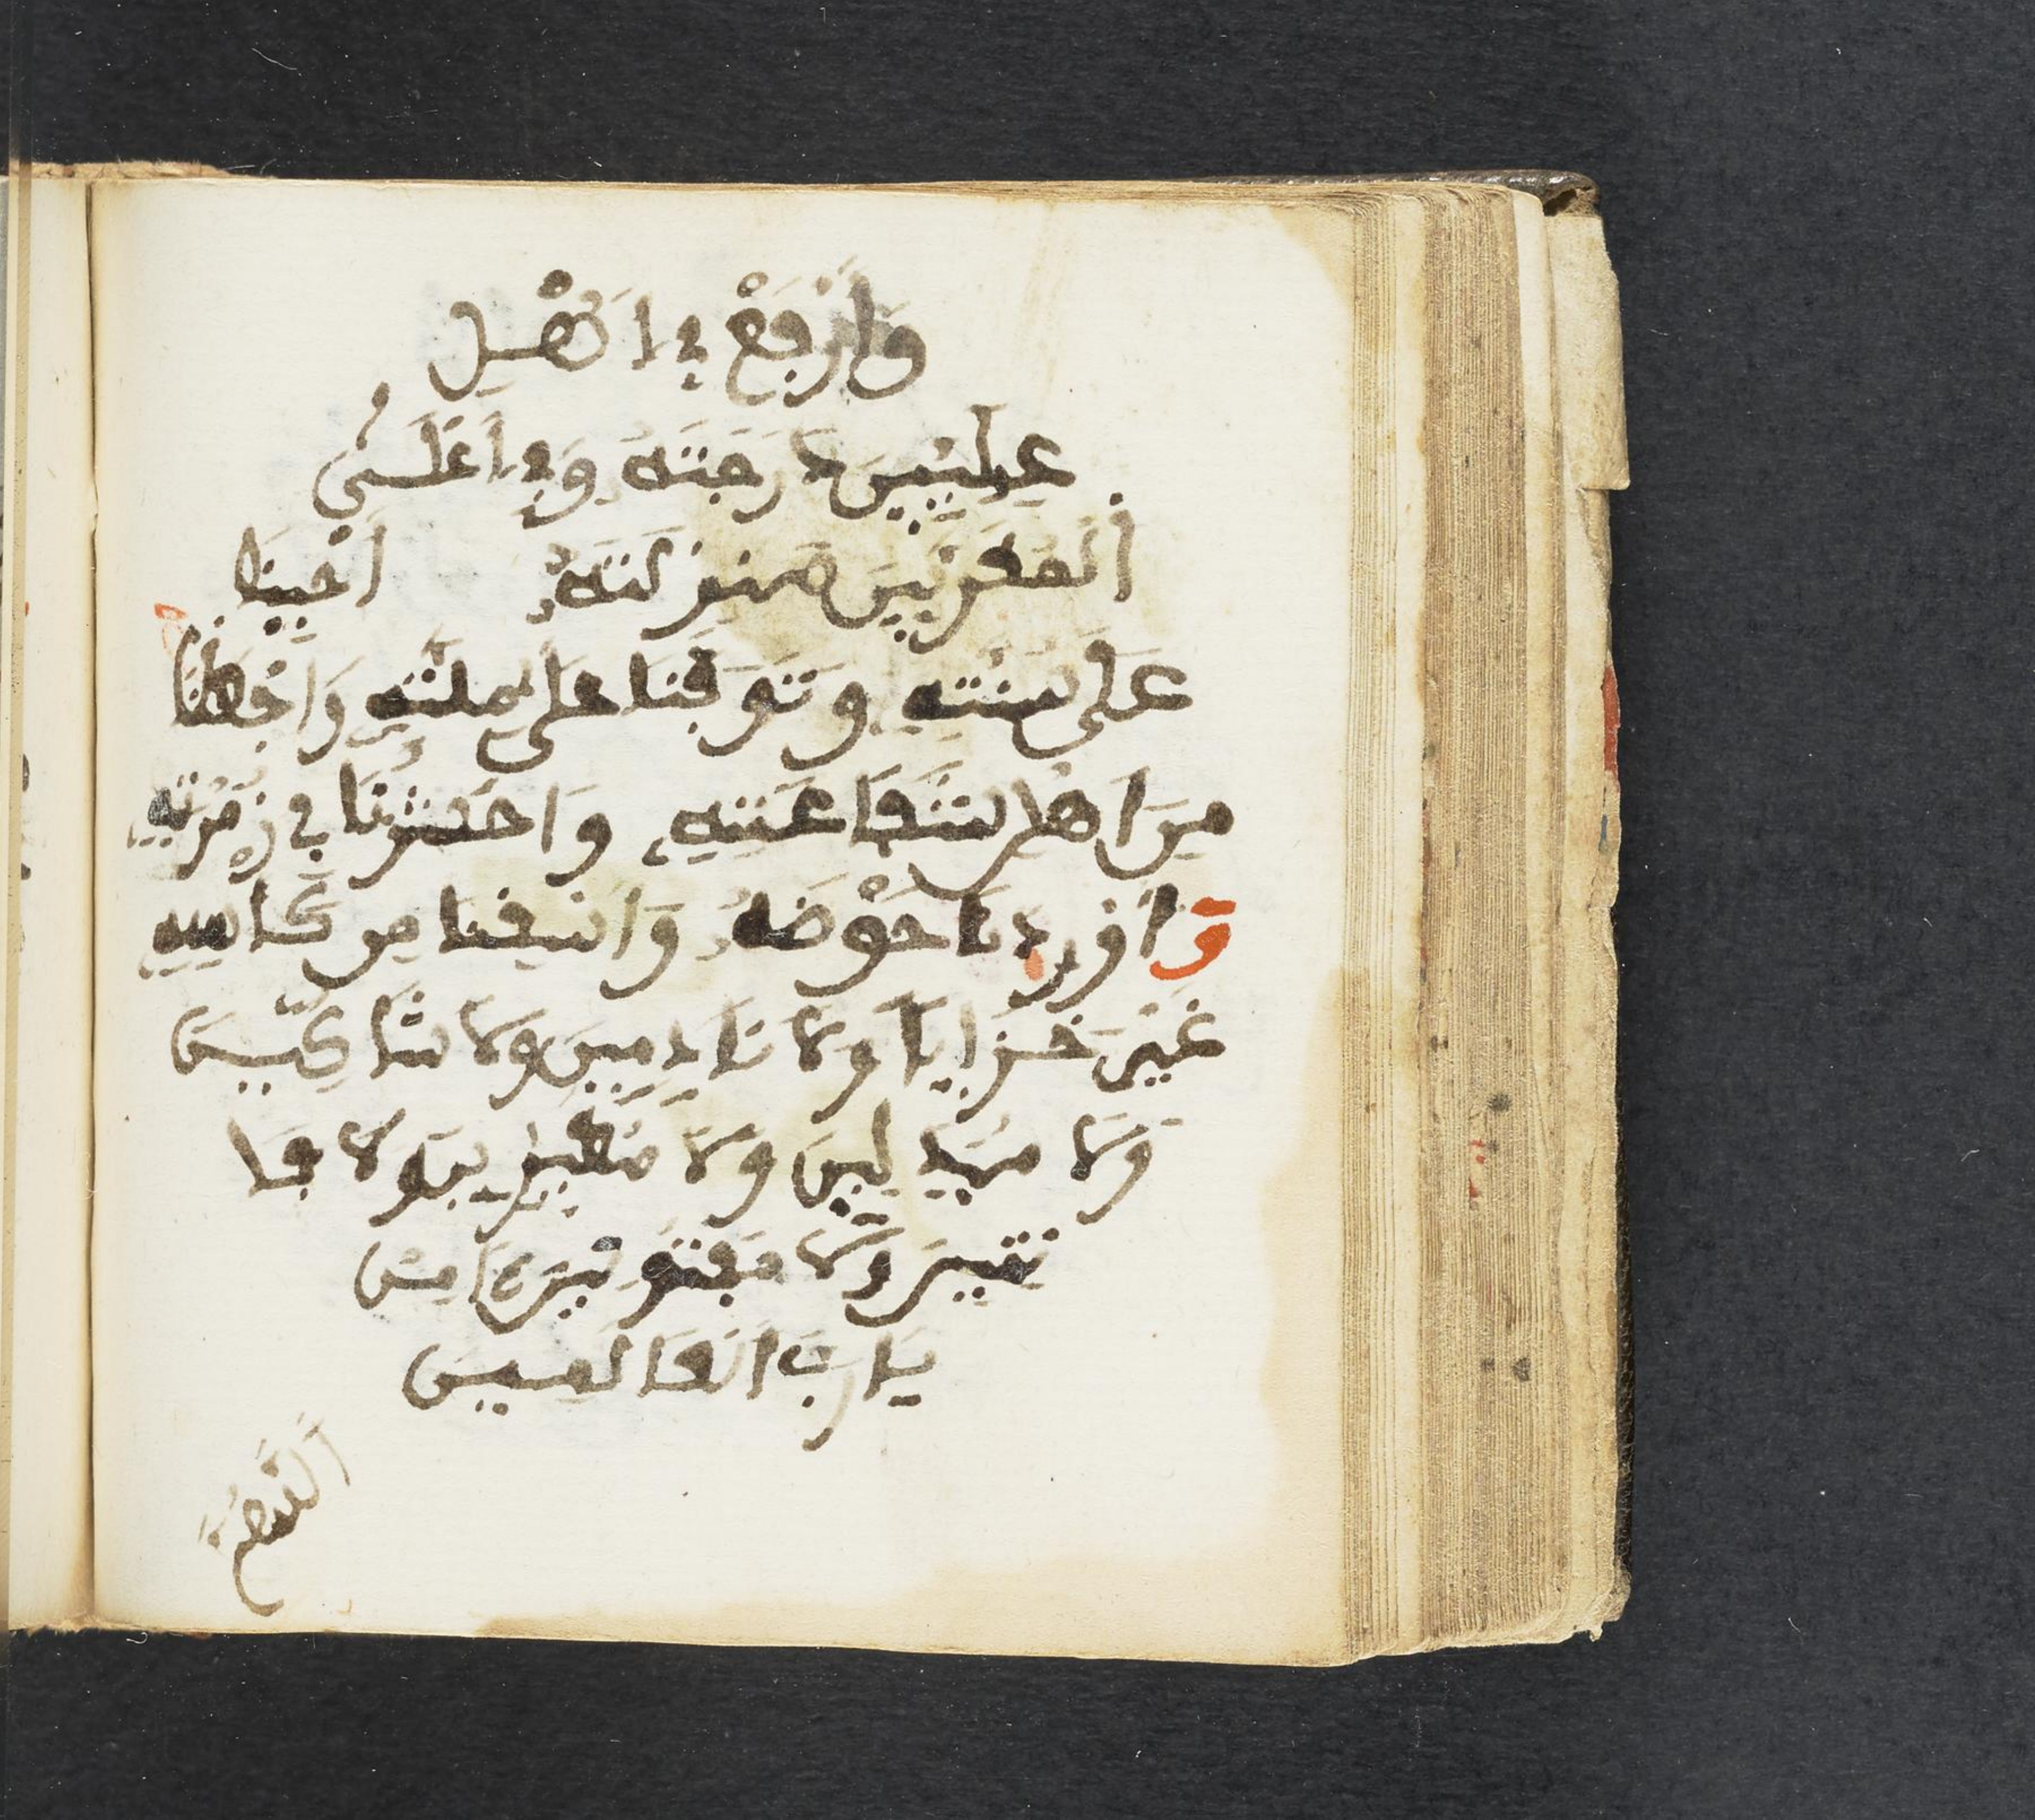 وَارْفَعْ فِي اَهْلِ
عِلِّيِّينَ دَرَجَتَهُ وَفِي اَعْلَى
اَلْمُقَرَّبِينَ مَنْزِلَتَهُ اَحْيِنَا
عَلَى سُنَّتِهِ وَتَوَفَّنَا عَلَى مِلَّتِهِ وَاجْعَلْنَا
مِنَ اَهْلِ شَفَاعَتِهِ وَاحْشُرْنَا فِي زُمْرَتِهِ
وَاوْرِدْنَا حَوْضَهُ وَاسْقِنَا مِن كَاسِهِ
غَيْرَ خَزَايَا وَلَا نَادِمِينَ وَلَا شَاكِّينَ
وَلَا مُبَدِّلِينَ وَلَا مُغَيِّرِينَ وَلَا فَا
تِنِينَ وَلَا مَفْتُونِينَ ءَامِينَ
يَا رَبَّ الْعَالَمِينَ
اَللَّهُمَّ